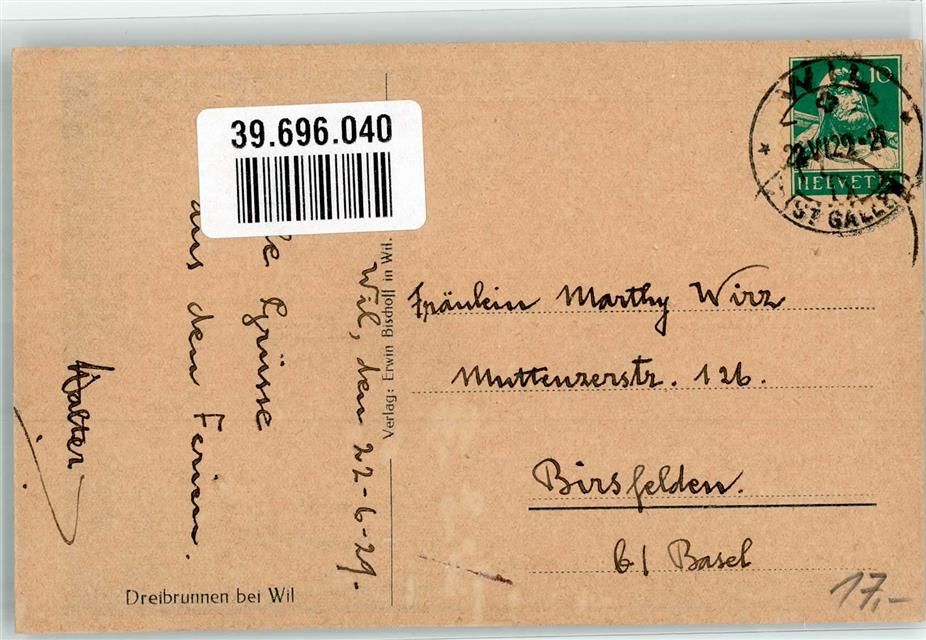 39.696.040
Wil, den 22-6-29.
Grüsse
aus den Ferien.
Walter
Verlag: Erwin Bischoff in Wil.
Dreibrunnen bei Wil
10
HELVETIA
WIL
22.VI.29-21
(ST GALLEN)
Fräulein Marthy Wirz
Muttenzerstr. 126.
Birsfelden.
b/ Basel
17,-